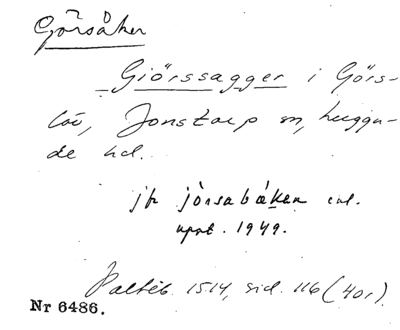 Görsåker
Giörssagger i Görs-
löv, Jonstorp sn, Luggu-
de hd.
jfr jörsabáken enl.
uppt. 1949.
Palteb. 1514, sid. 116 (40r).
Nr 6486.